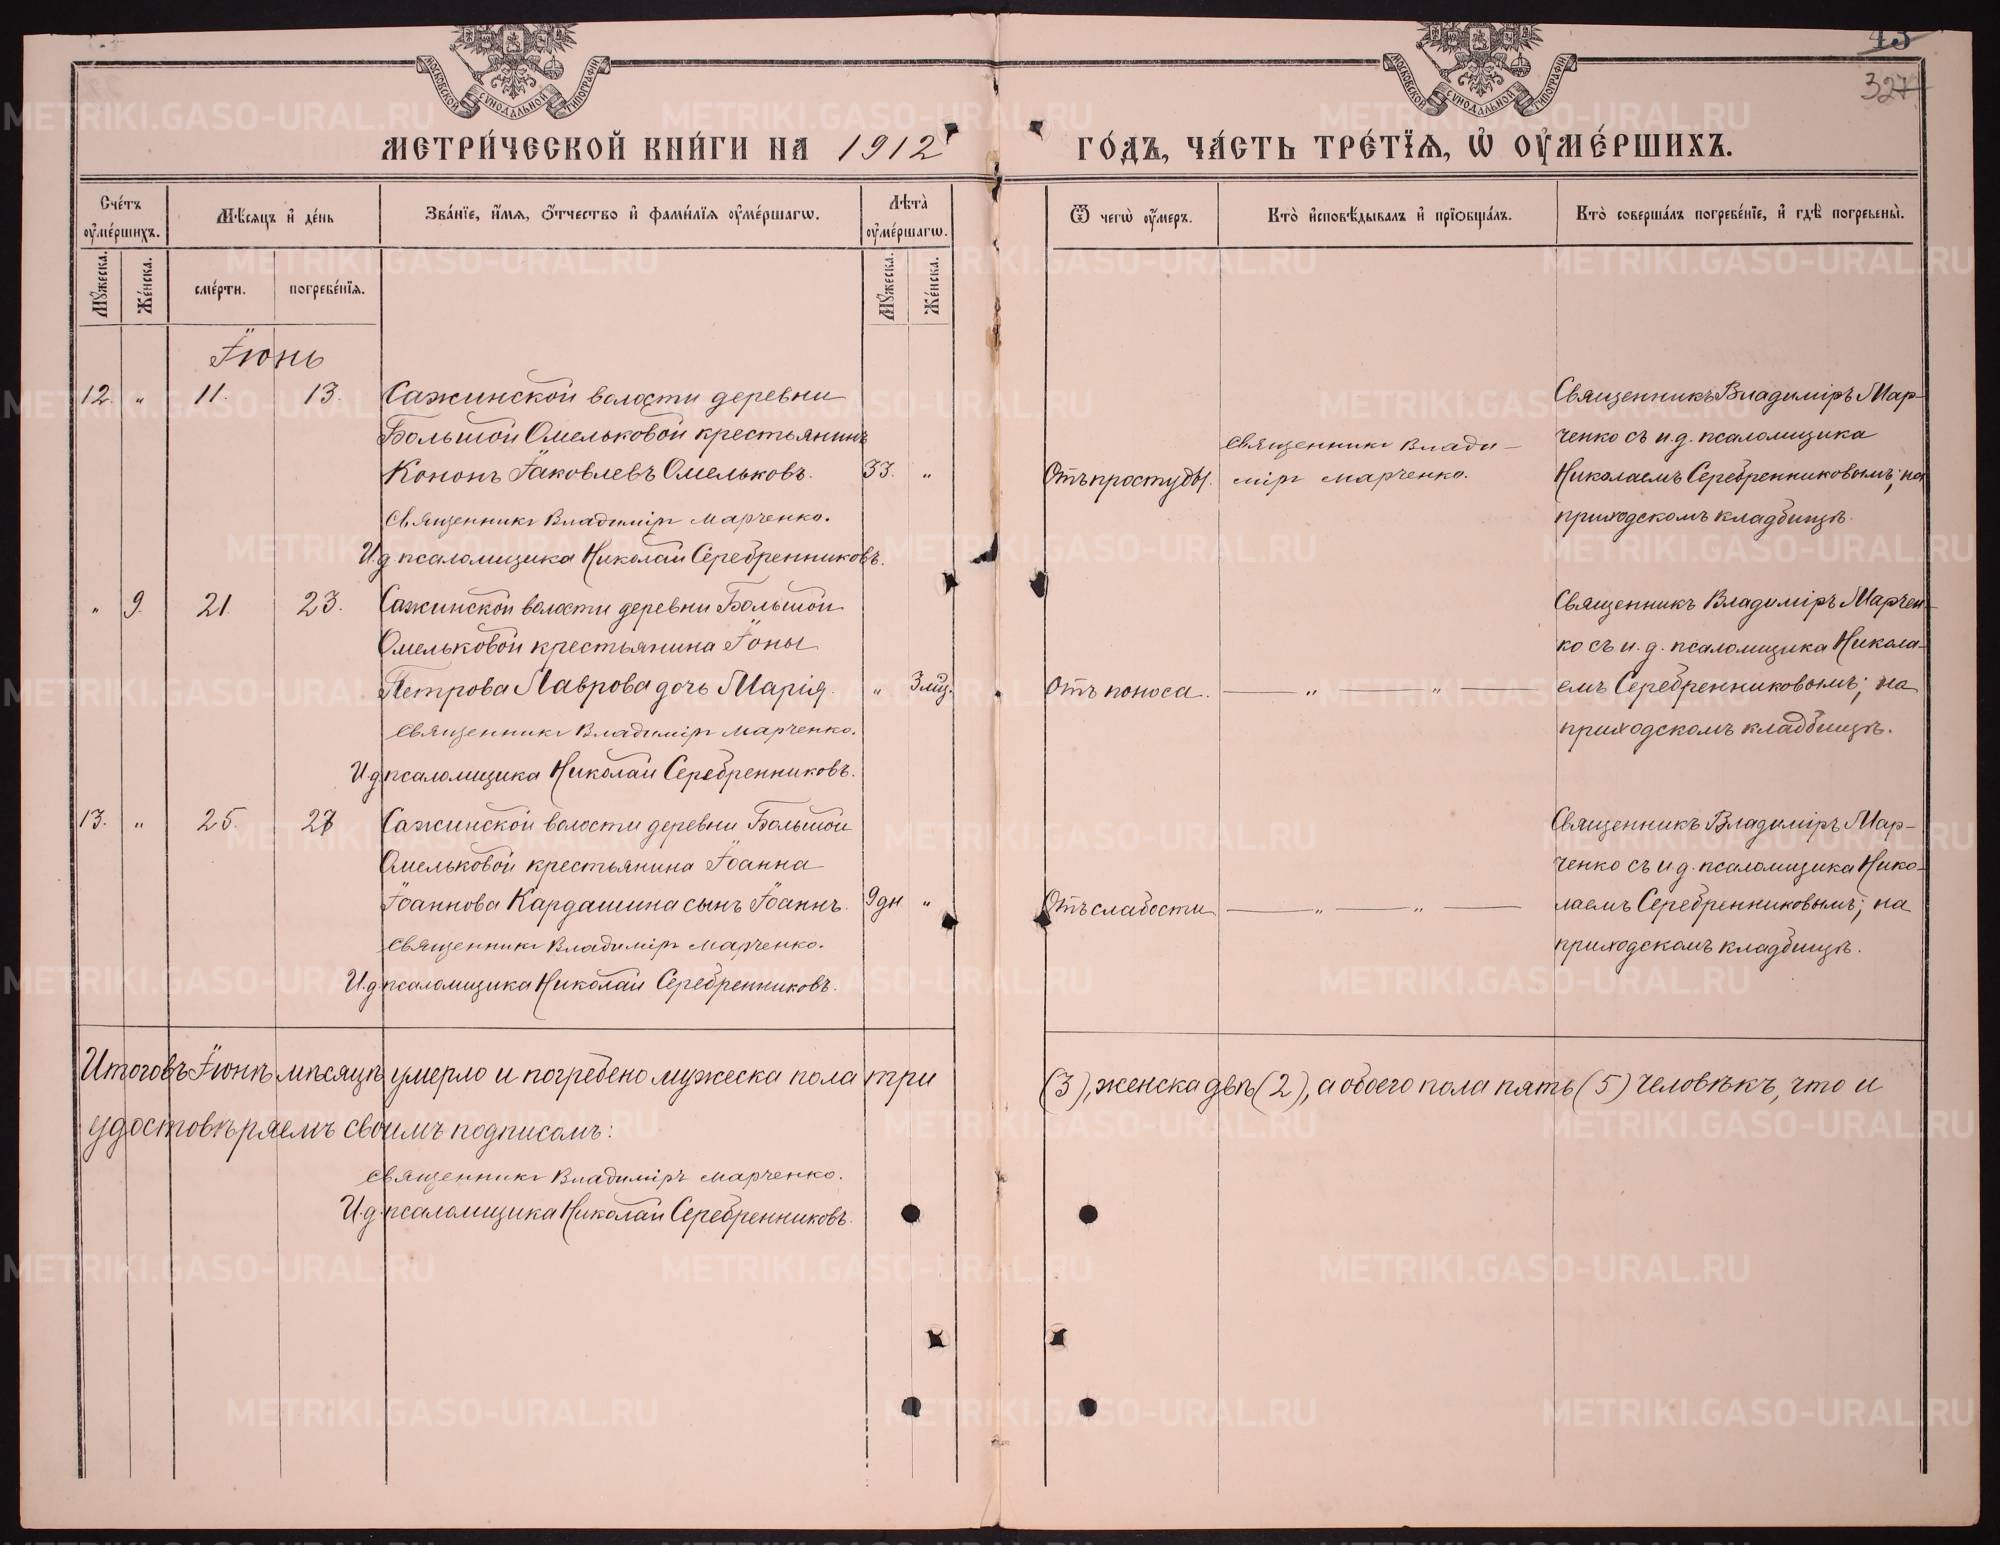 МОСКОВСКОЙ СѴНОДАЛЬНОЙ ТИПОГРАФІИ
МОСКОВСКОЙ СѴНОДАЛЬНОЙ ТИПОГРАФІИ
43
327
МЕТРИ́ЧЕСКОЙ КНИ́ГИ НА 1912 ГО́ДЪ, ЧА́СТЬ ТРЕ́ТІѦ, Ѡ҆ ОУ҆МЕ́РШИХЪ.
Сче́тъ оу҆ме́ршихъ.
Мѣ́сяцъ и҆ де́нь
Зва́нїе, и҆́мѧ, ѻ҆́тчество и҆ фами́лїѧ оу҆ме́ршагѡ.
Лѣ́та̀ оу҆ме́ршагѡ.
Ѿ чегѡ̀ оу҆́меръ.
Кто̀ и҆сповѣ́дывалъ и҆ прїѡбща́лъ.
Кто̀ соверша́лъ погребе́нїе, и҆ гдѣ̀ погребены̀.
Мꙋ́жеска.
Же́нска.
сме́рти.
погребе́нїѧ.
Мꙋ́жеска.
Же́нска.
Іюнь
12. „ 11. 13. Сажинской волости деревни
Большой Омельковой крестьянинъ
Кононъ Іаковлевъ Омельковъ. 33. „
Священникъ Владиміръ Марченко.
И.д. псаломщика Николай Серебренниковъ.
Отъ простуды.
Священникъ Влади-
міръ Марченко.
Священникъ Владиміръ Мар-
ченко съ и.д. псаломщика
Николаемъ Серебренниковымъ; на
приходскомъ кладбищѣ.
„ 9. 21. 23. Сажинской волости деревни Большой
Омельковой крестьянина Іоны
Петрова Лаврова дочь Марія. „ 3 мц.
Священникъ Владиміръ Марченко.
И.д. псаломщика Николай Серебренниковъ.
Отъ поноса. — „ — „ —
Священникъ Владиміръ Марчен-
ко съ и.д. псаломщика Никола-
емъ Серебренниковымъ; на
приходскомъ кладбищѣ.
13. „ 25. 27 Сажинской волости деревни Большой
Омельковой крестьянина Іоанна
Іоаннова Кардашина сынъ Іоаннъ. 9 дн. „
Священникъ Владиміръ Марченко.
И.д. псаломщика Николай Серебренниковъ.
Отъ слабости — „ — „ —
Священникъ Владиміръ Мар-
ченко съ и.д. псаломщика Нико-
лаемъ Серебренниковымъ; на
приходскомъ кладбищѣ.
Итого въ Іюнѣ мѣсяцѣ умерло и погребено мужеска пола три (3), женска двѣ (2), а обоего пола пять (5) человѣкъ, что и
удостовѣряемъ своимъ подписомъ:
Священникъ Владиміръ Марченко.
И.д. псаломщика Николай Серебренниковъ.
METRIKI.GASO-URAL.RU